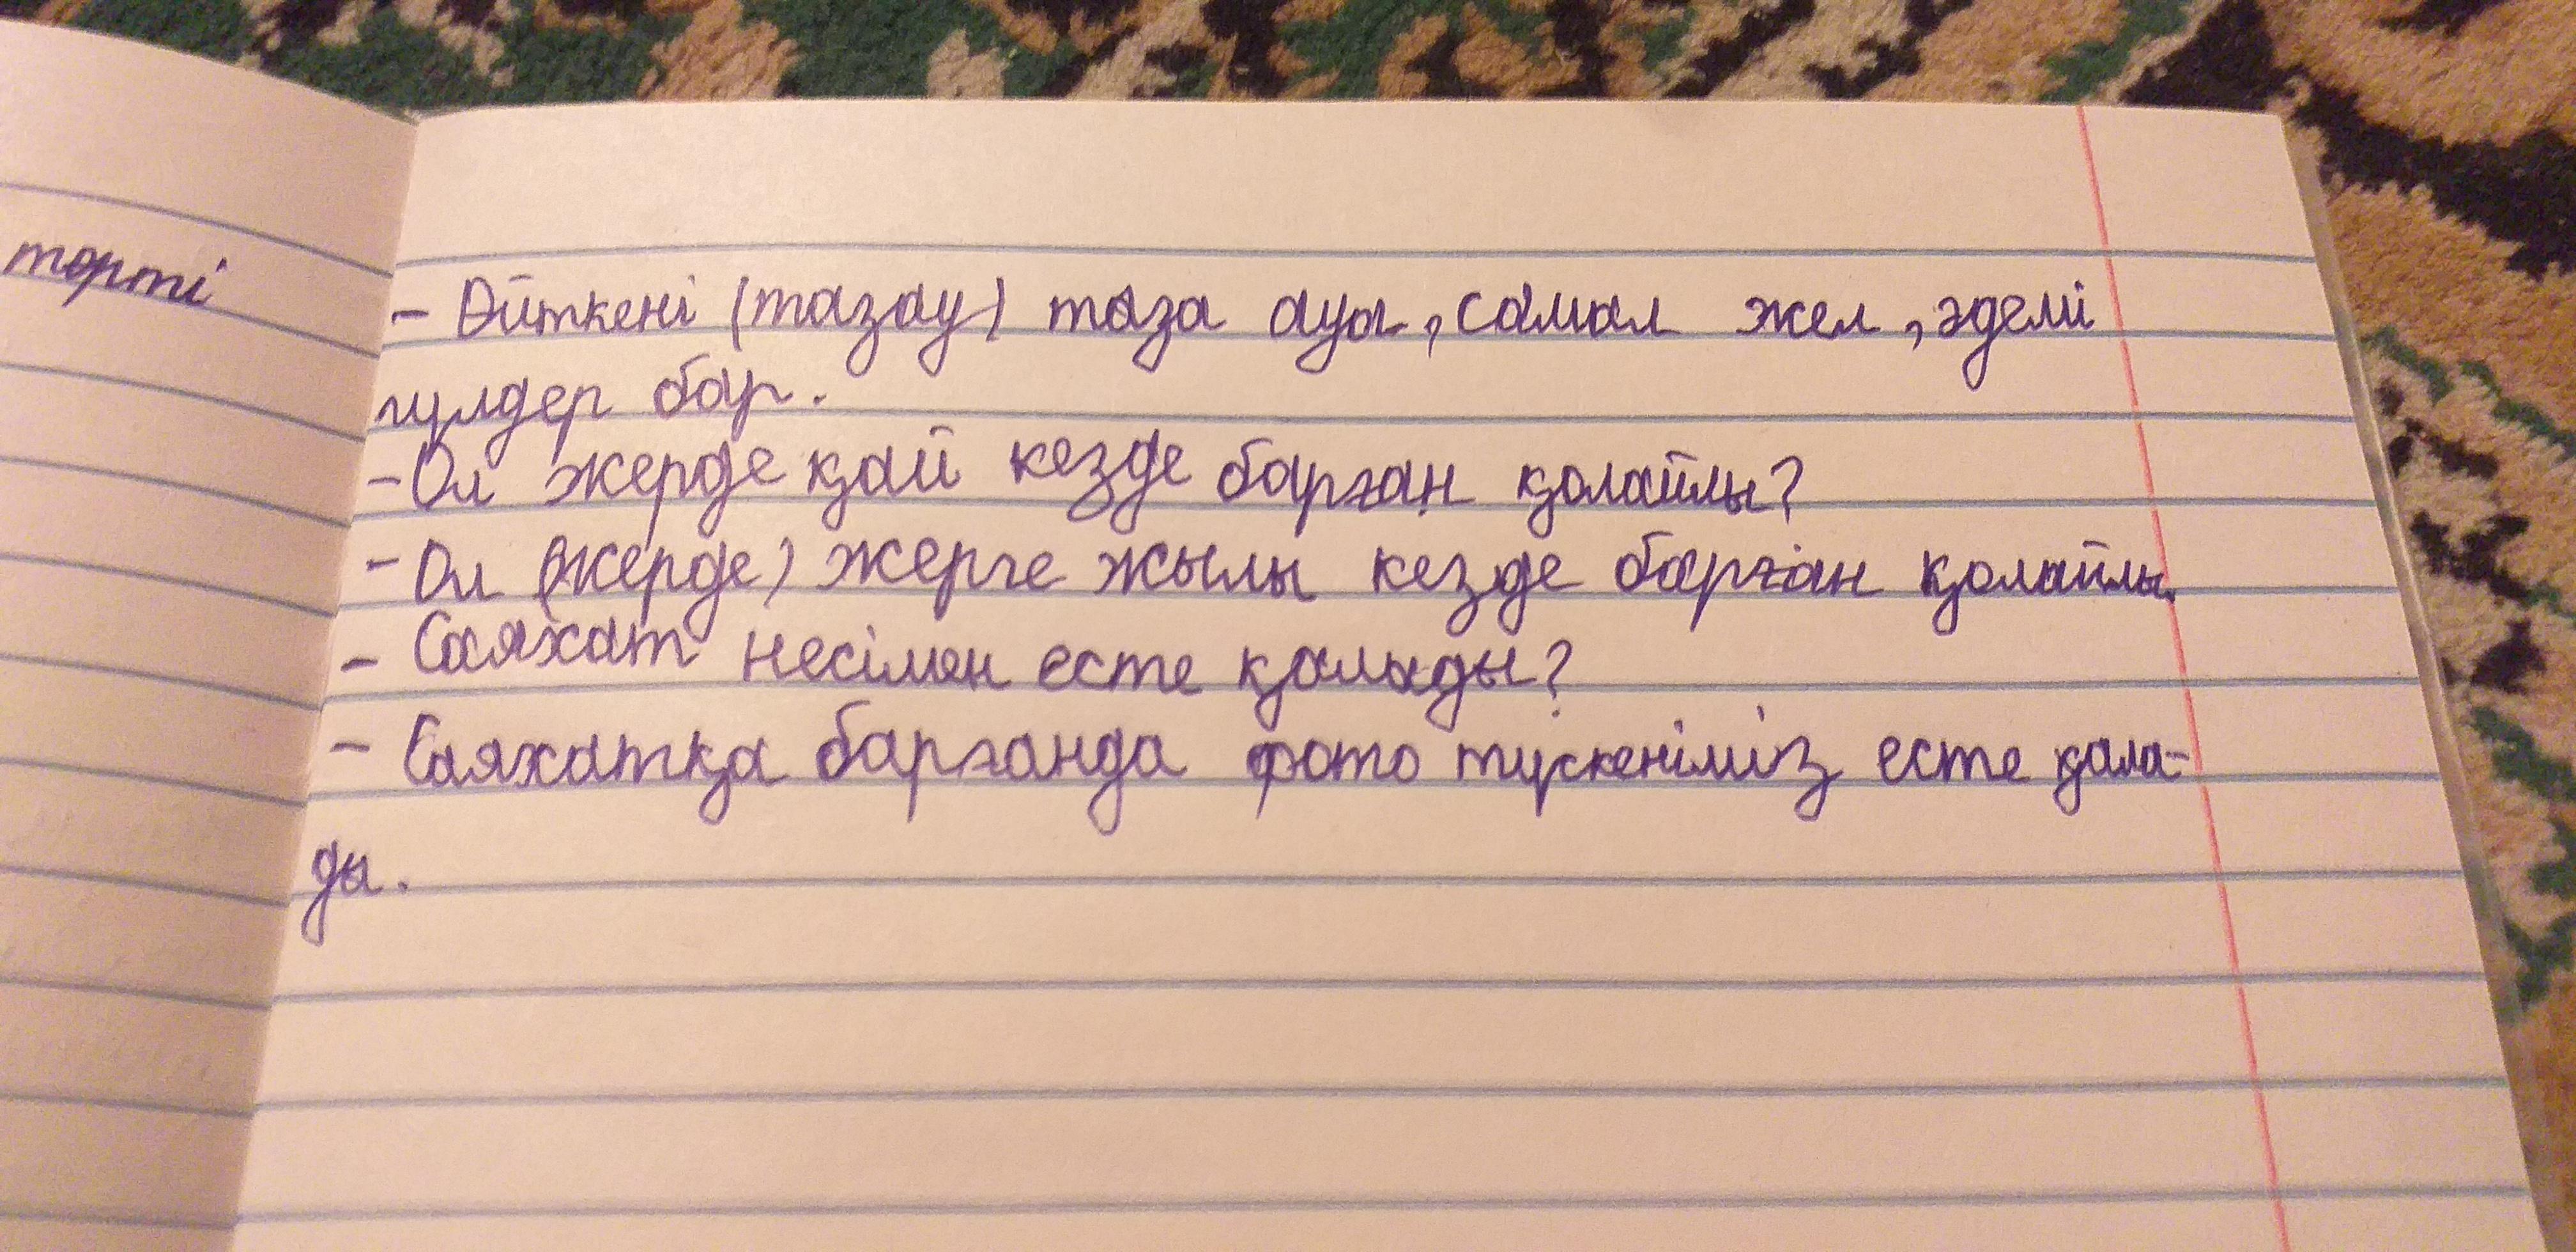 төрті
- Өйткені (тазау) таза ауа, самал жел, әдемі
гүлдер бар.
- Ол жерде қай кезде барған қолайлы?
- Ол (жерде) жерге жылы кезде барған қолайлы.
- Саяхат несімен есте қалыды?
- Саяхатқа барғанда фото түскеніміз есте қала-
ды.